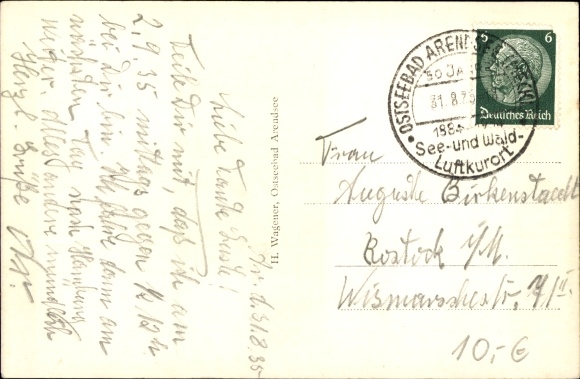 d. 31.8.35
Liebe Tante
Teile Dir mit, daß ich am
2.9.35 mittags gegen ½ 12 h
bei Dir bin. Ich fahre dann am
nächsten Tag nach Hamburg
Alles andere mündlich
Herzl. Grüße
H. Wagener, Ostseebad Arendsee
OSTSEEBAD ARENDSEE
50 JAHRE
31.8.35
1884
See- und Wald-
Luftkurort
6 6
Deutsches Reich
Frau
Auguste Birkenstaedt
Rostock i/M.
Wismarschestr. 7/II
10,-€